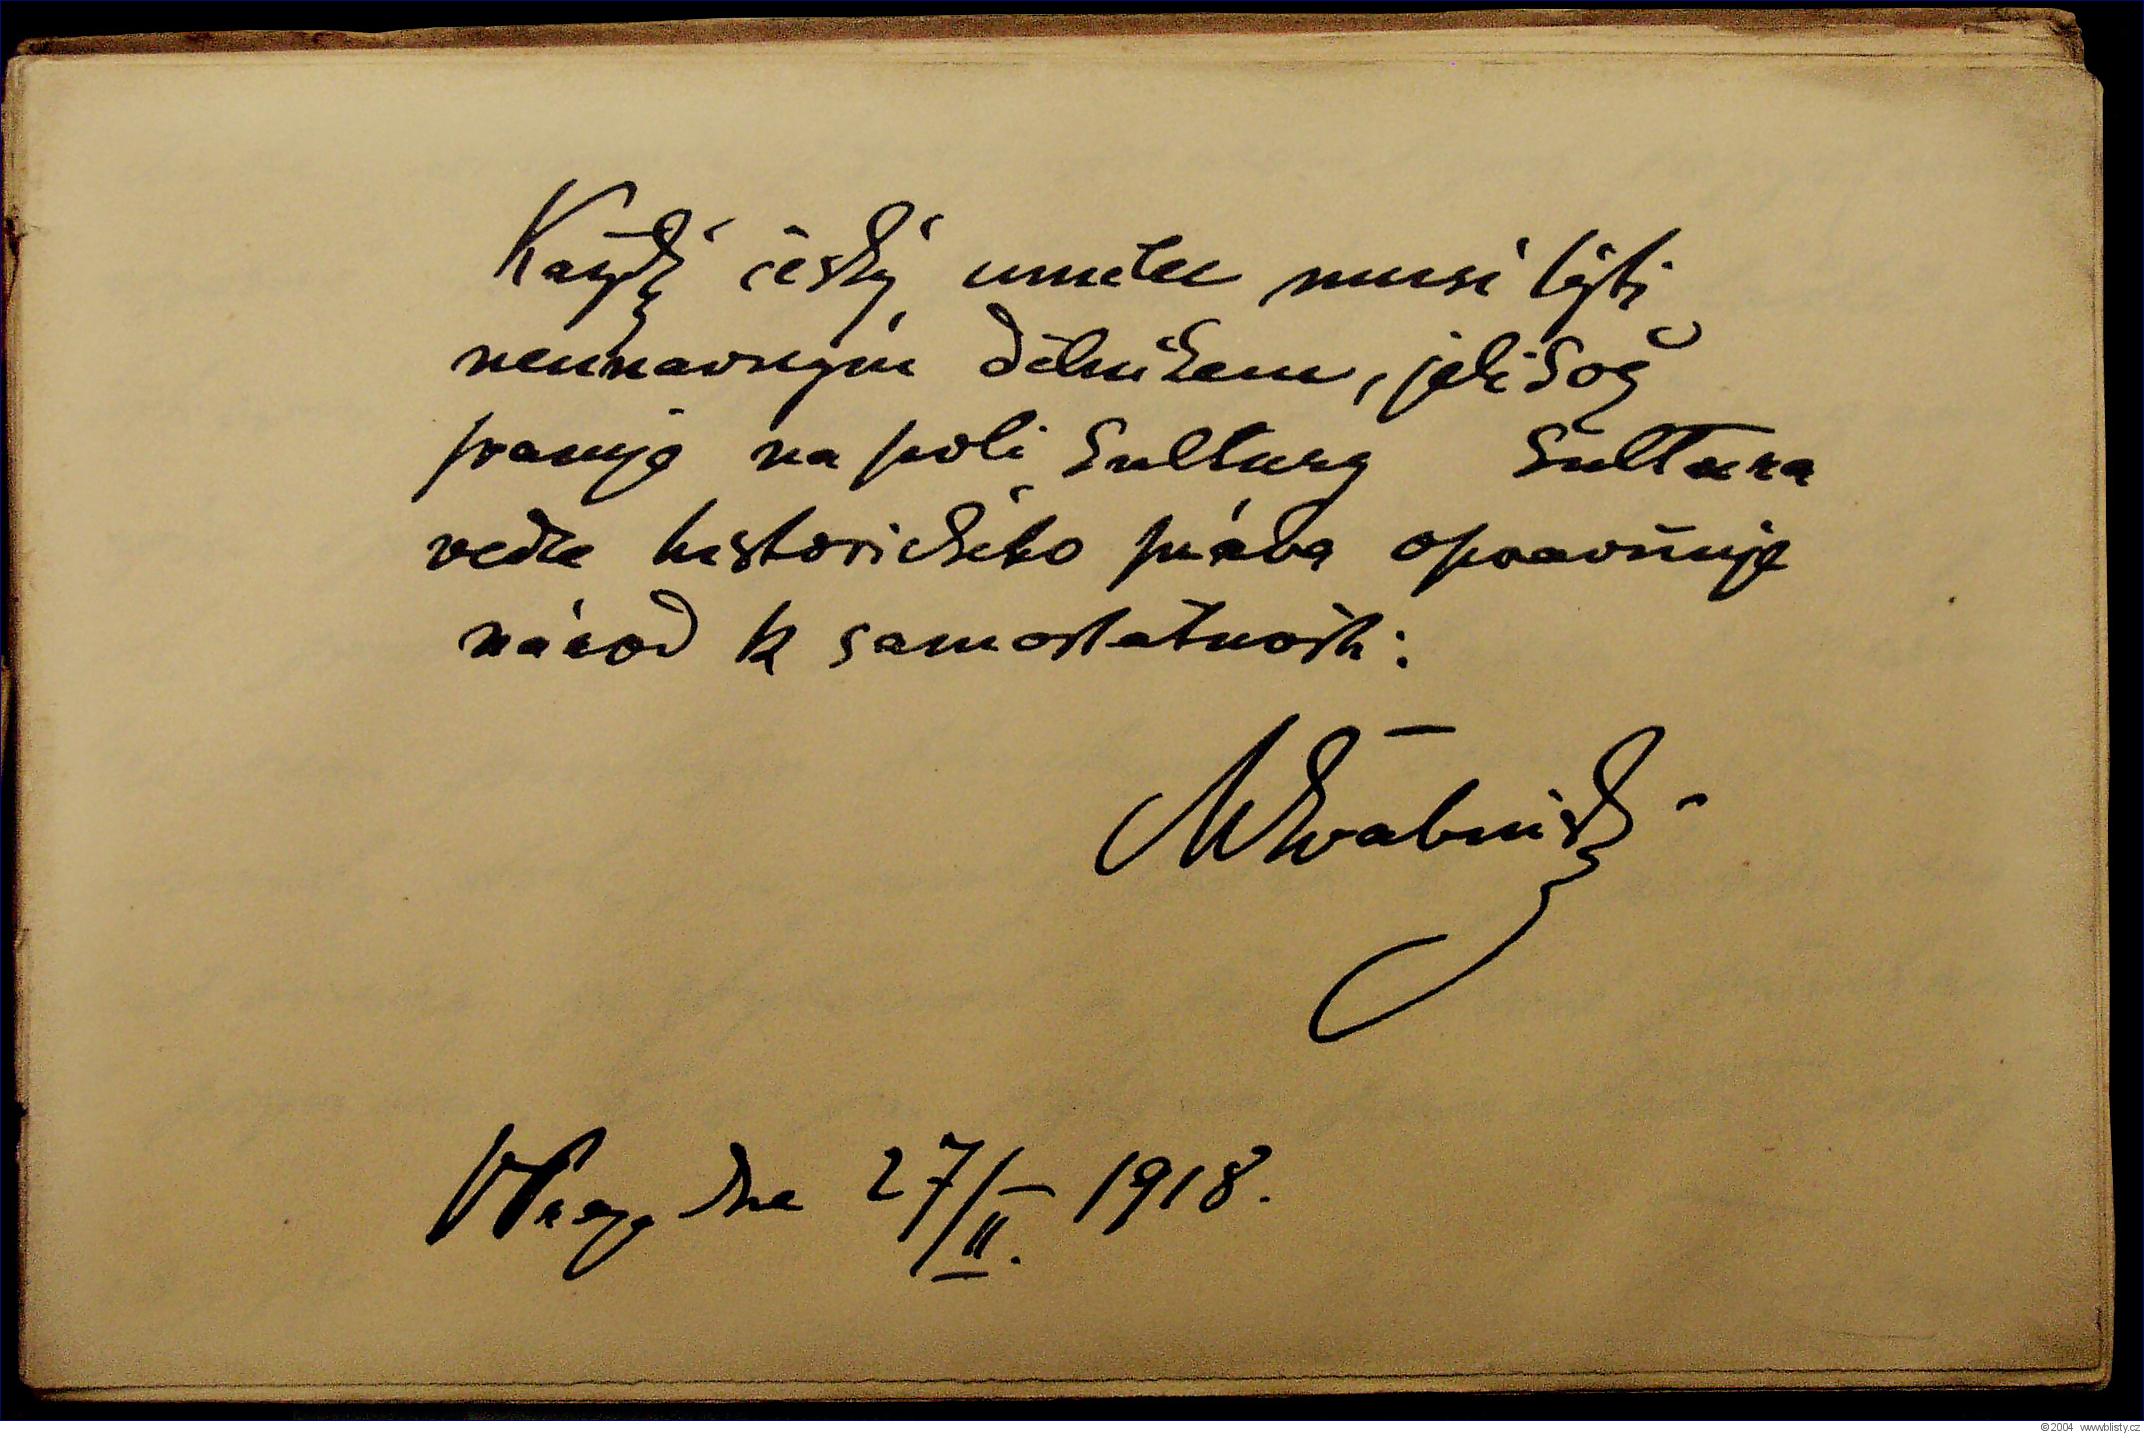 Každý český umělec musí býti
neunavným dělníkem, jelikož
pracuje na poli kultury kultura
vedle historického práva opravňuje
národ k samostatnosti:
MŠvabinský
V Praze dne 27/II. 1918.
© 2004 www.blisty.cz